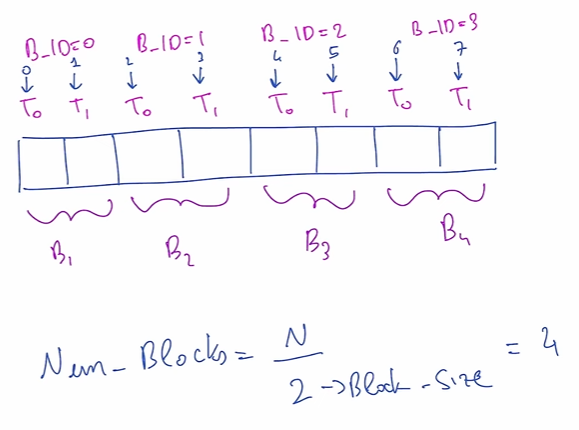 B_ID=0 B_ID=1 B_ID=2 B_ID=3
0 1 2 3 4 5 6 7
T0 T1 T0 T1 T0 T1 T0 T1
B1 B2 B3 B4
Num_Blocks = N / 2 → Block_Size = 4